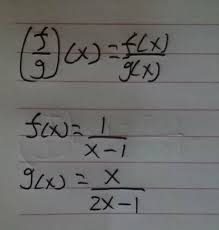 (f/g)(x) = f(x)/g(x)
f(x) = 1/(x-1)
g(x) = x/(2x-1)